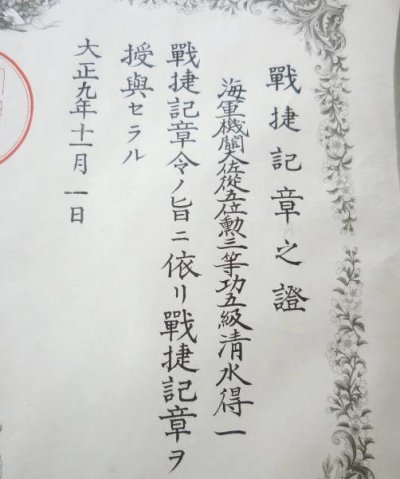 戰捷記章之證
海軍機關大佐從五位勲三等功五級清水得一
戰捷記章令ノ旨ニ依リ戰捷記章ヲ
授與セラル
大正九年十一月一日